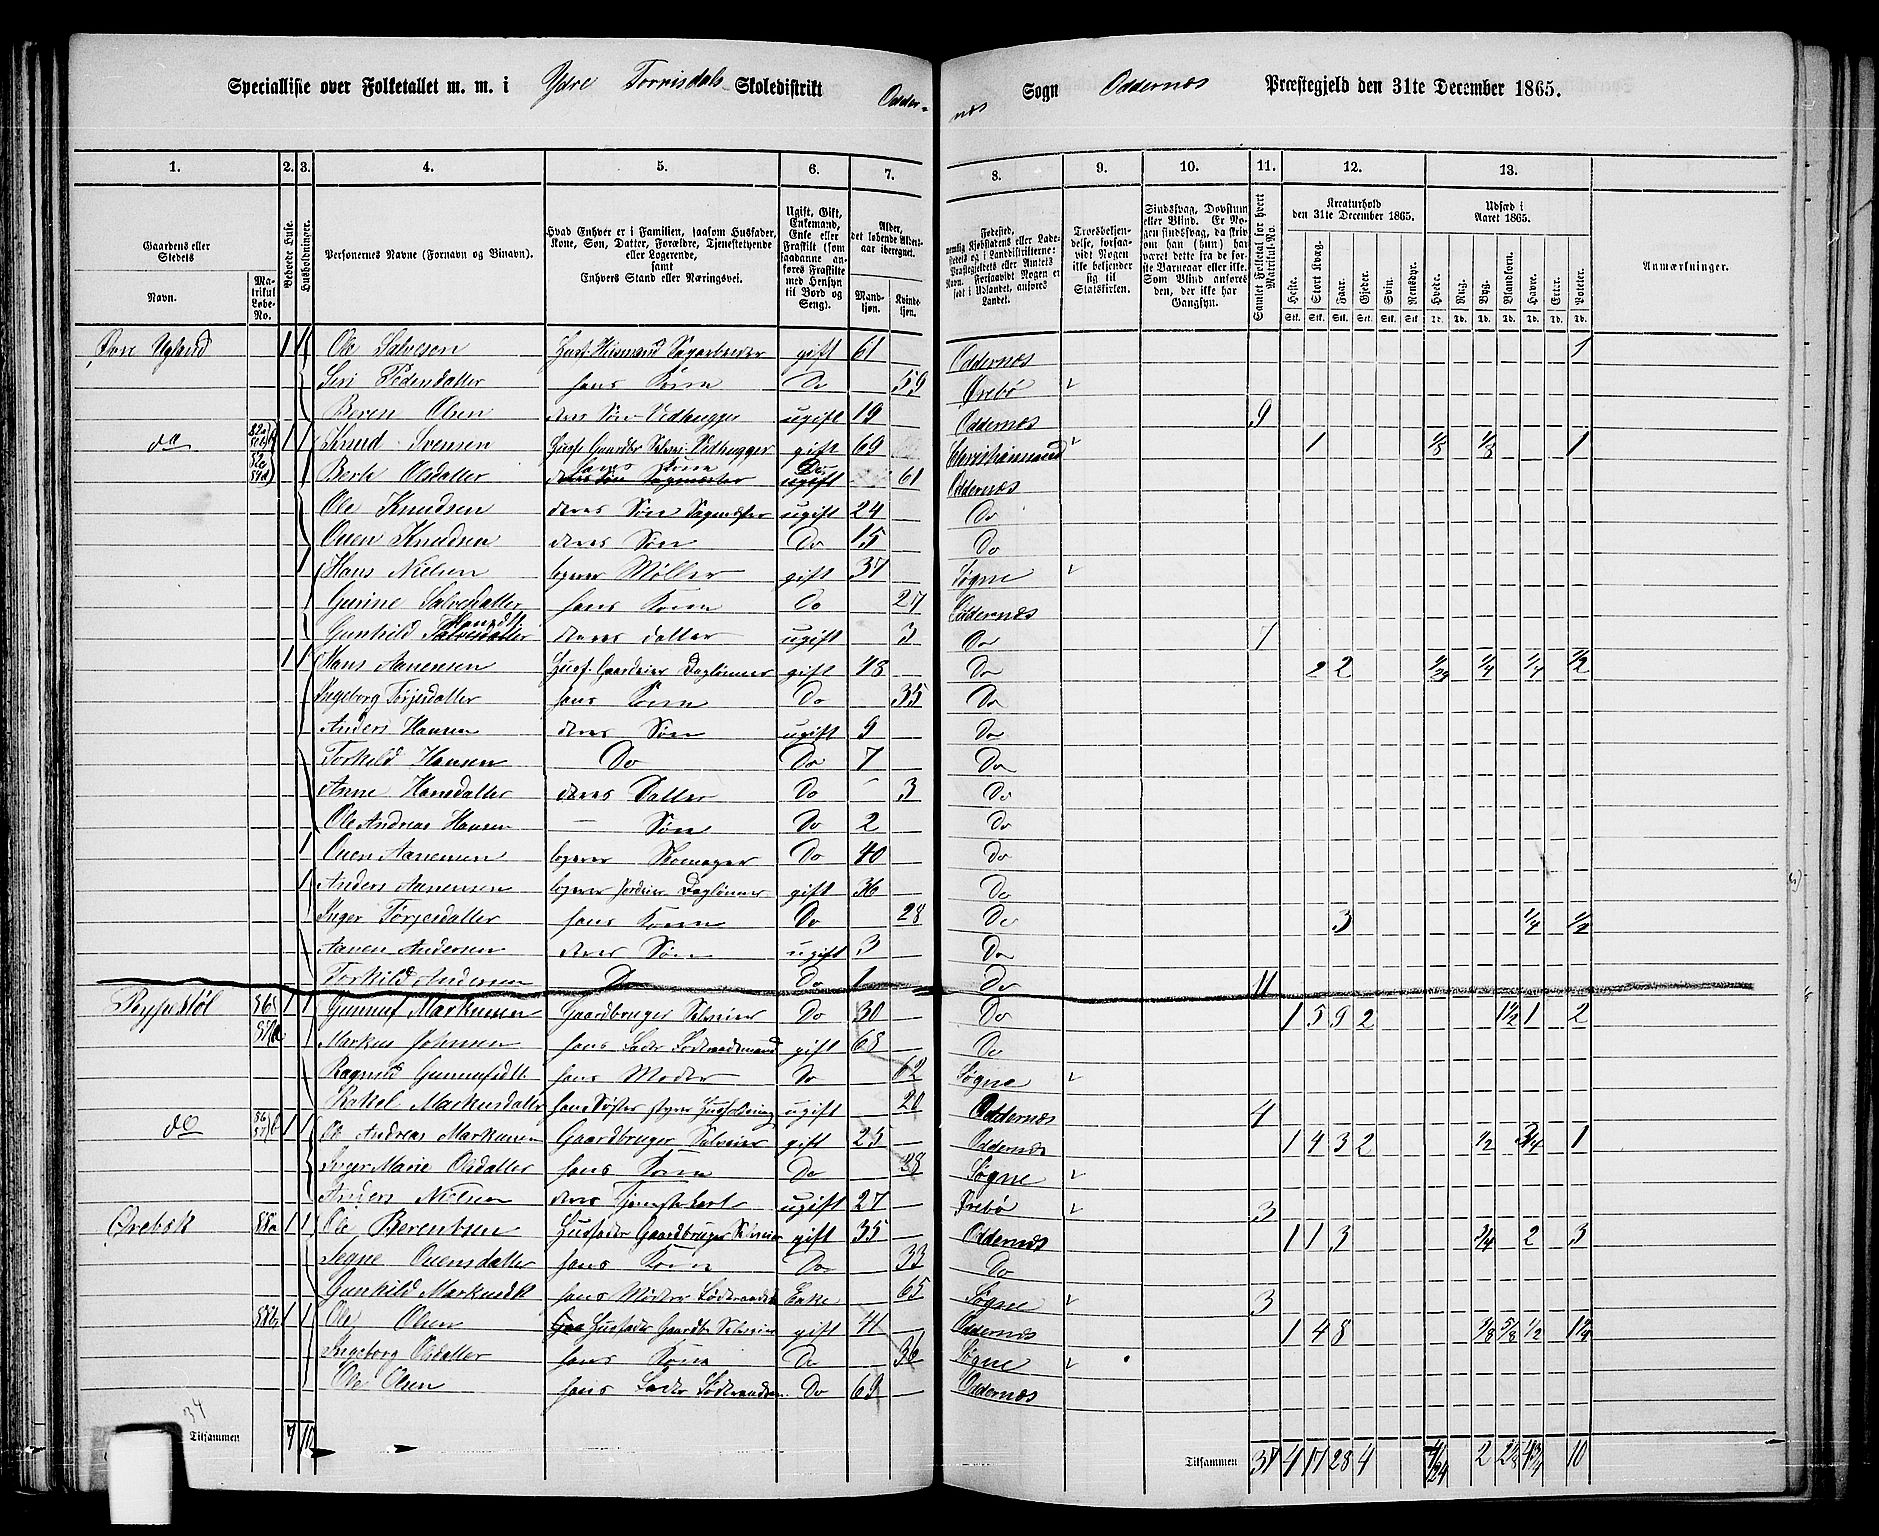 Speciallliste over Folketallet m. m. i Ydre Torrisdals Skoledistrikt Odder- næs Sogn Oddernæs Præstegjeld den 31te December 1865.
1. 2. 3. 4. 5. 6. 7. 8. 9. 10. 11. 12. 13.
Gaardens eller Stedets Navn. Matrikul Løbe-No. Beboede Huse. Husholdninger. Personernes Navne (Fornavn og Binavn). Hvad Enhver er i Familien, saasom Husfader, Kone, Søn, Datter, Forældre, Tjenestetyende eller Logerende, samt Enhvers Stand eller Næringsvei. Ugift, Gift, Enkemand, Enke eller Fraskilte (som saadanne anføres Fraskilte med Hensyn til Bord og Seng). Alder, det løbende Aldersaar iberegnet. Mandkjøn. Kvindekjøn.
Kreaturhold den 31te December 1865. Udsæd i Aaret 1865. Anmærkninger.
Heste. Stort Kvæg. Faar. Gjeder. Svin. Rensdyr. Hvede. Rug. Byg. Blandkorn. Havre. Erter. Poteter.
Øvre Ugland 1 1 Ole Salvesen Husf. Huusmand Sagarbeider gift 61 Oddernæs 1
Siri Pedersdatter hans Kone Do 59 Øvrebø
Beren Olsen deres Søn Vedhugger ugift 19 Oddernæs 9
do 1 1 Knud Svensen Husf. Gaardbr Selvei. Vedhugger gift 69 Christianssand 1 1/8 1/8 1
Berte Olsdatter hans Kone Do 61 Oddernæs
Ole Knudsen deres Søn Sagmester ugift 24 Do
Ouen Knudsen deres Søn Do 15 Do
1 Hans Nielsen logerer Møller gift 37 Søgne
Gurine Salvesdatter hans Kone Do 27 Oddernæs
Gunhild Hansdt deres datter ugift 3 Do 7
1 1 Hans Aanensen Husf. Gaardeier Daglønner gift 43 Do 2 2 1/24 1/4 1/4 1/2
Ingeborg Tørjesdatter hans Kone Do 35 Do
Anders Hansen deres Søn ugift 9 Do
Torkild Hansen Do Do 7 Do
Anne Hansdatter deres Datter Do 3 Do
Ole Andreas Hansen — Søn Do 2 Do
1 Ouen Aanensen logerer Skomager Do 40 Do
1 Anders Aanensen logerer Jordeier Daglønner gift 36 Do
Inger Tørjesdatter hans Kone Do 28 Do 3 1/4 1/2
Aanen Andersen deres Søn ugift 3 Do
Torkild Andersen Do Do 1 Do 11
Rypestøl 56 1 1 Gunnuf Markussen Gaardbruger Selveier Do 30 Do 1 5 9 2 1/2 1 2
57a Markus Johnsen hans Fader Føderaadsmand gift 68 Do
Ragnild Gunnufsdt hans Moder Do 62 Søgne
Rakel Markusdatter hans Søster styrer Husholdning ugift 20 Oddernæs 4
do 1 1 Ole Andreas Markussen Gaardbruger Selveier gift 25 Oddernæs 1 4 3 2 1/2 3/4 1
Inger Marie Olsdatter hans Kone Do 28 Søgne
Anders Nielsen deres Tjenestekarl ugift 27 Øvrebø 3
Ørebæk 58a 1 1 Ole Berentsen Husfader Gaardbruger Selveier gift 35 Oddernæs 1 1 3 3/4 2 3
Signe Ouensdatter hans Kone Do 33 Do
Gunhild Markusdt hans Moder Føderaads Enke 65 Søgne 3
58b 1 1 Ole Olsen Husfader Gaardbr Selveier gift 41 Oddernæs 1 4 8 5/8 5/8 1/2 1 1/4
Ingeborg Olsdatter hans Kone Do 36 Søgne
Ole Olsen hans Fader Føderaadsm. Do 69 Oddernæs
34 Tilsammen 7 10 Tilsammen 37 4 17 28 4 2 10